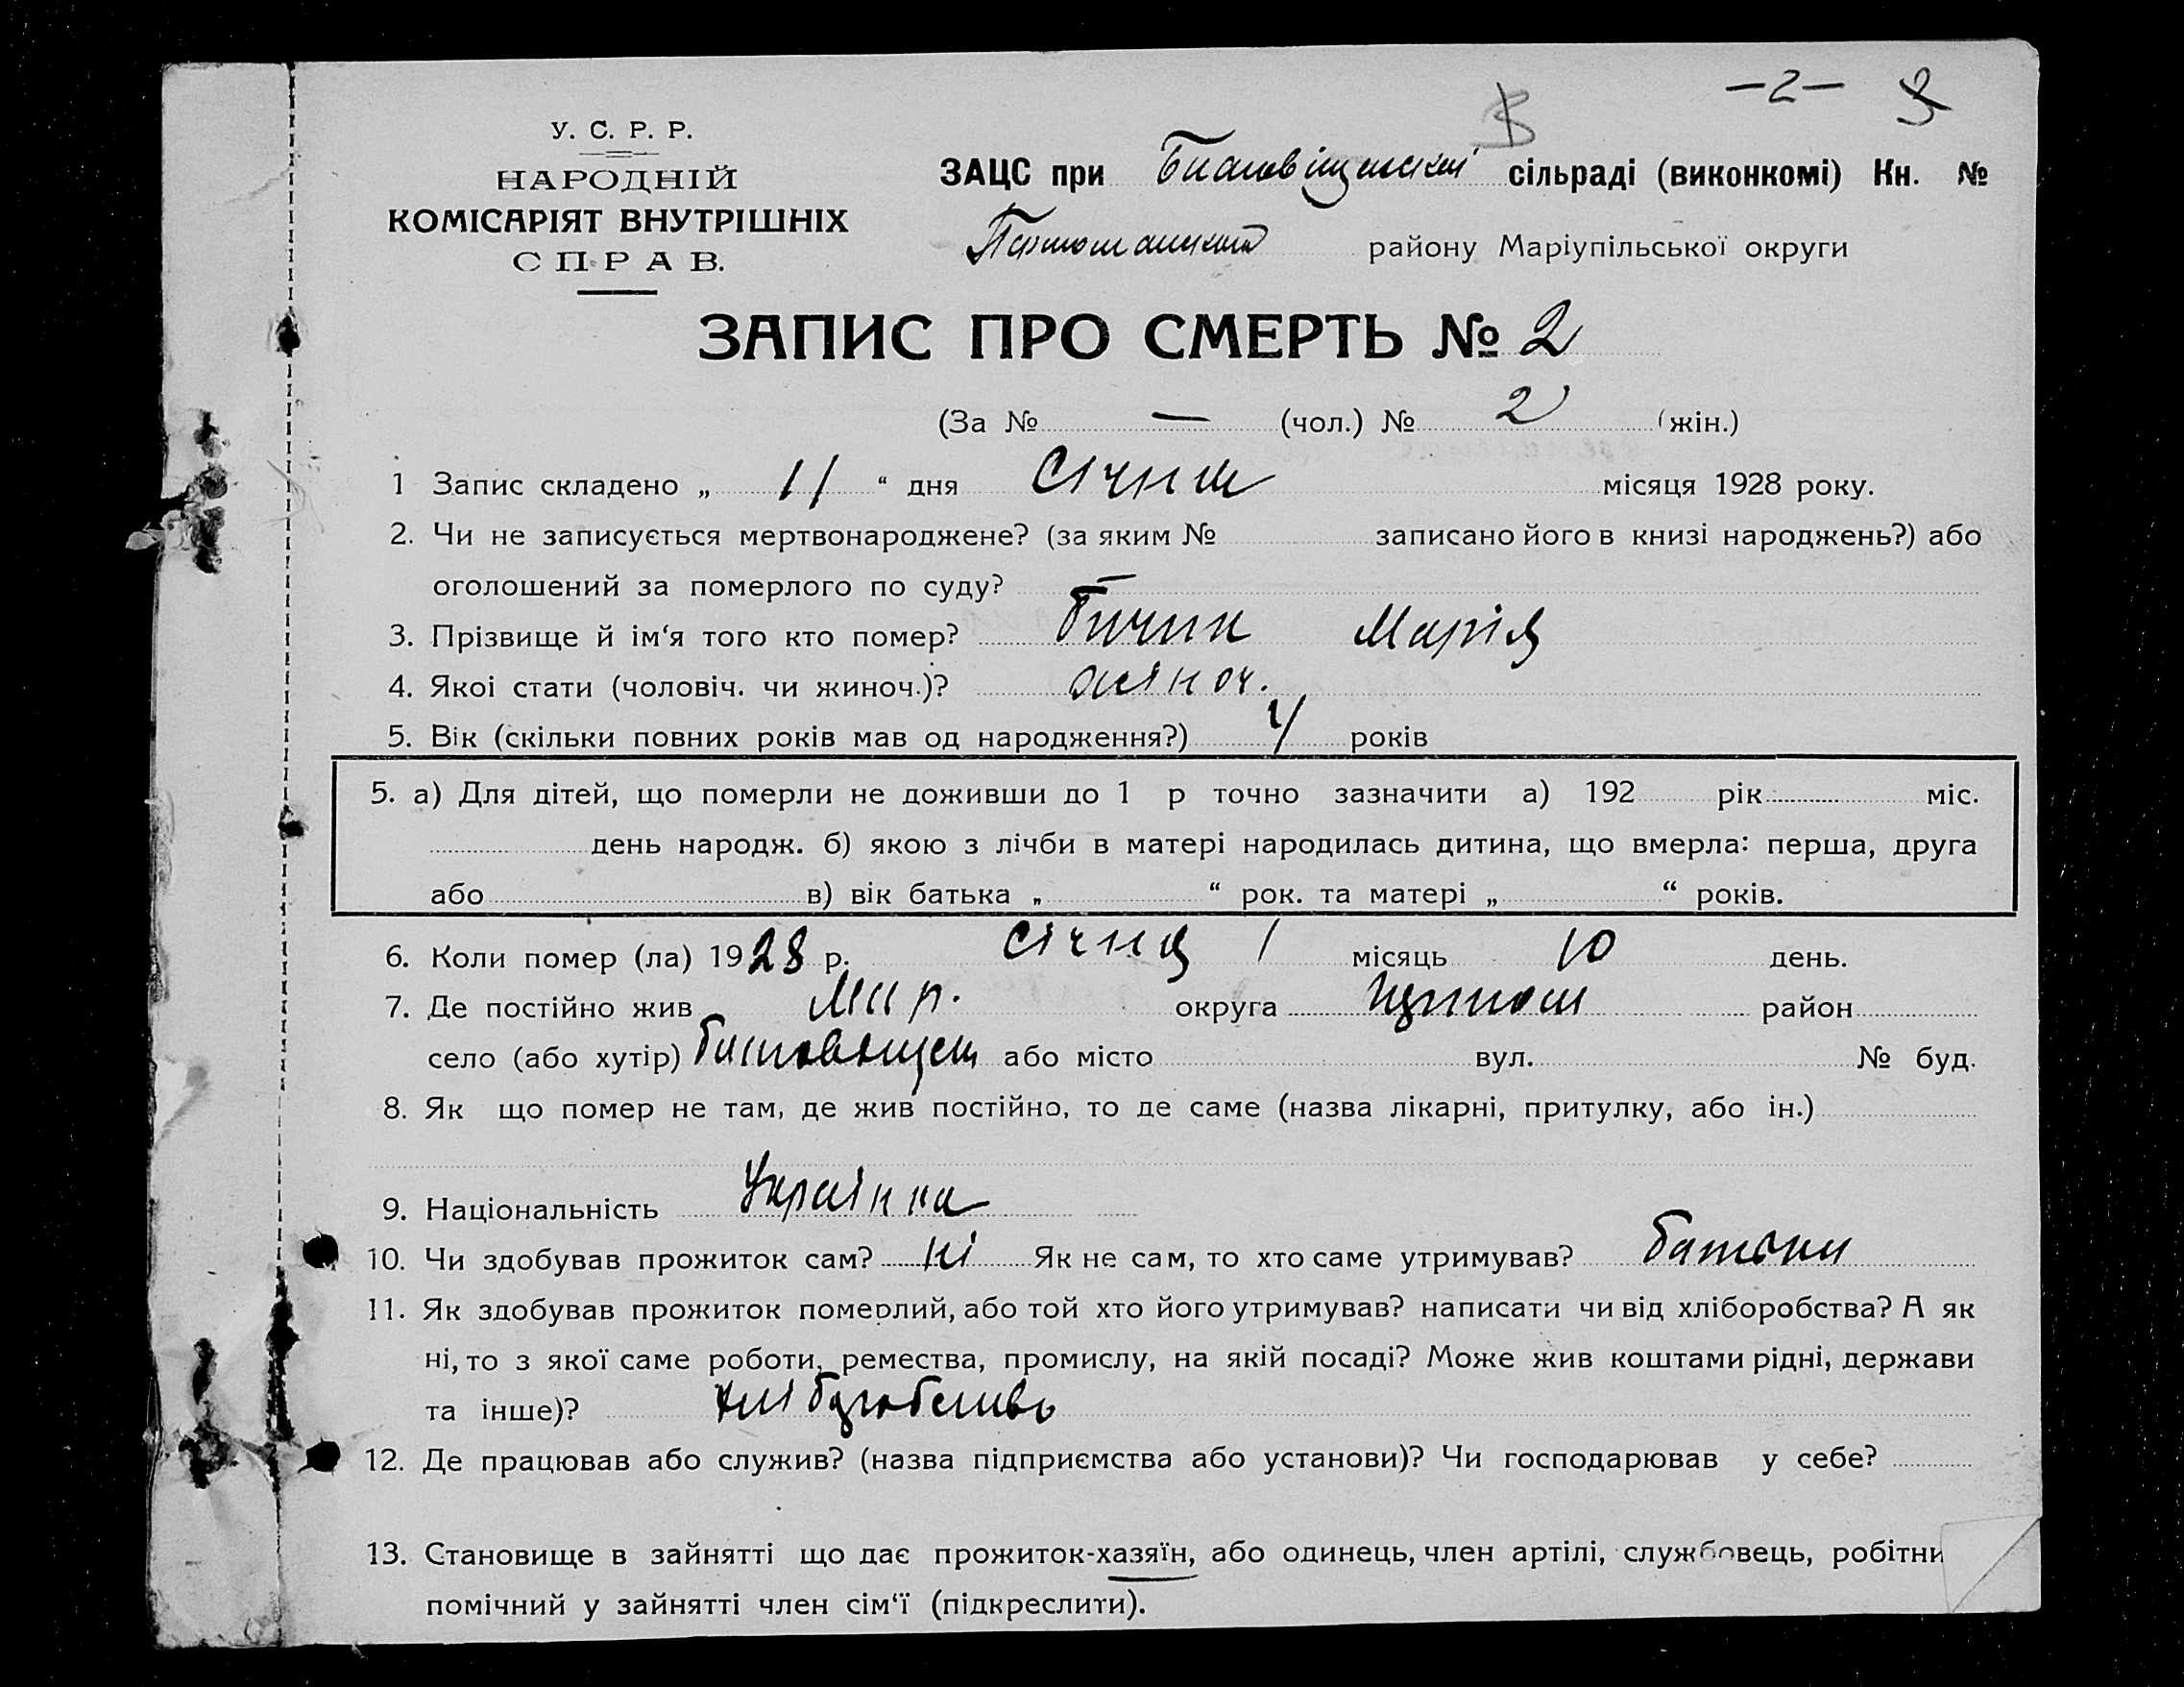 —2— 3
У. С. Р. Р.
НАРОДНІЙ
КОМІСАРІЯТ ВНУТРІШНІХ
СПРАВ.
ЗАЦС при сільраді (виконкомі) Кн. №
району Маріупільської округи
ЗАПИС ПРО СМЕРТЬ № 2
(За № — (чол.) № 2 (жін.)
1 Запис складено „ 11 “ дня Січня місяця 1928 року.
2. Чи не записується мертвонароджене? (за яким № записано його в книзі народжень?) або
оголошений за померлого по суду? —
3. Прізвище й ім‘я того кто помер? Бичик Марія
4. Якоі стати (чоловіч. чи жиноч.)? жіноч.
5. Вік (скільки повних років мав од народження?) 4 років
5. а) Для дітей, що померли не доживши до 1 р точно зазначити а) 192 рік міс.
день народж. б) якою з лічби в матері народилась дитина, що вмерла: перша, друга
або в) вік батька „ “ рок. та матері „ “ років.
6. Коли помер (ла) 1928 р. січня 1 місяць 10 день.
7. Де постійно жив Мар. округа район
село (або хутір) або місто вул. № буд.
8. Як що помер не там, де жив постійно, то де саме (назва лікарні, притулку, або ін.)
9. Національність Українка
10. Чи здобував прожиток сам? ні Як не сам, то хто саме утримував? батьки
11. Як здобував прожиток померлий, або той хто його утримував? написати чи від хліборобства? А як
ні, то з якої саме роботи, ремества, промислу, на якій посаді? Може жив коштами рідні, держави
та інше)? хліборобство
12. Де працював або служив? (назва підприємства або установи)? Чи господарював у себе?
13. Становище в зайнятті що дає прожиток-хазяїн, або одинець, член артілі, службовець, робітни
помічний у зайнятті член сім‘ї (підкреслити).